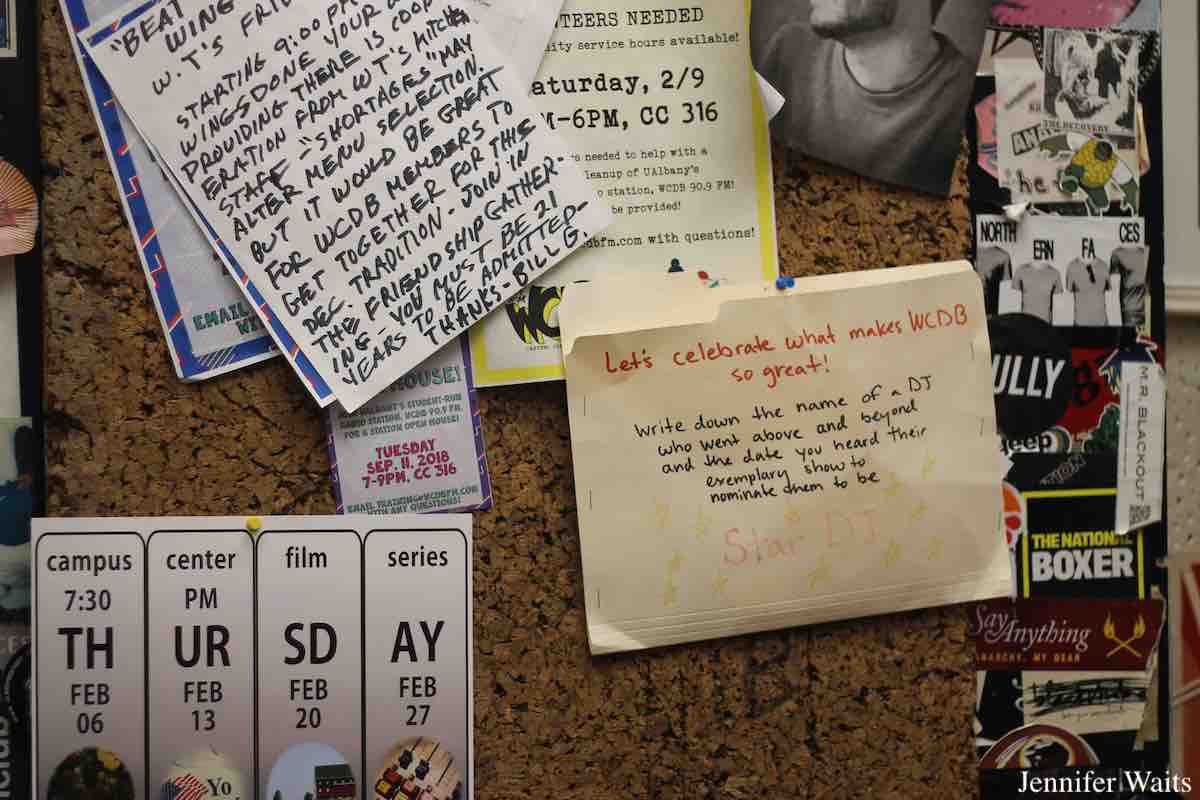 "BEAT
WING
W.T'S FRI
STARTING 9:00 P
WINGS DONE YOUR
PROVIDING THERE IS COOP
ERATION FROM WT'S KITCH
STAFF - "SHORTAGES" MAY
ALTER MENU SELECTION.
BUT IT WOULD BE GREAT
FOR WCDB MEMBERS TO
GET TOGETHER FOR THIS
DEC. TRADITION - JOIN IN
THE FRIENDSHIP GATHER-
ING - YOU MUST BE 21
YEARS TO BE ADMITTED -
THANKS - BILL G.
EMAIL
TEERS NEEDED
ity service hours available!
aturday, 2/9
M-6PM, CC 316
s needed to help with a
leanup of UAlbany's
o station, WCDB 90.9 FM!
be provided!
dbfm.com with questions!
HOUSE!
UALBANY'S STUDENT-RUN
RADIO STATION, WCDB 90.9 FM,
FOR A STATION OPEN HOUSE!
TUESDAY
SEP. 11, 2018
7-9PM, CC 316
EMAIL TRAINING@WCDBFM.COM
WITH ANY QUESTIONS!
Let's celebrate what makes WCDB
so great!
Write down the name of a DJ
who went above and beyond
and the date you heard their
exemplary show to
nominate them to be
Star DJ
campus center film series
7:30 PM
TH UR SD AY
FEB FEB FEB FEB
06 13 20 27
Yo
THE RECOVERY
he
NORTH ERN FA CES
ULLY
eep
MR. BLACKOUT
THE NATIONAL
BOXER
Say Anything
ANARCHY, MY DEAR
Jennifer Waits